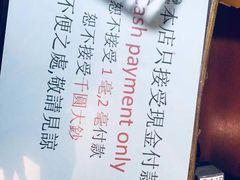 本店只接受現金付款
Cash payment only
恕不接受1毫,2毫付款
恕不接受千圓大鈔
不便之處,敬請見諒